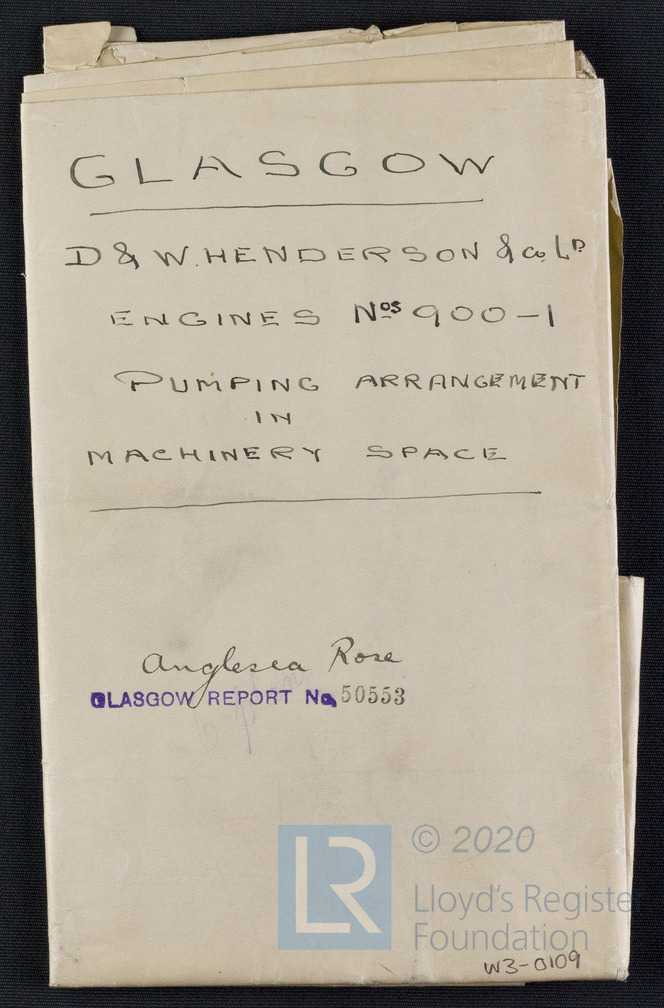 GLASGOW
D & W. HENDERSON & Co. LD.
ENGINES Nos 900-1
PUMPING ARRANGEMENT
IN
MACHINERY SPACE
Anglesea Rose
GLASGOW REPORT No. 50553
LR
© 2020
Lloyd's Register
Foundation
W3-0109